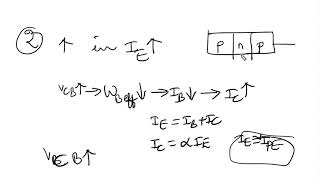 ② ↑ in I_E ↑
p n p
V_CB↑ → W_Beff↓ → I_B↓ → I_C↑
I_E = I_B + I_C
I_C = αI_E
I_E ≅ I_PE